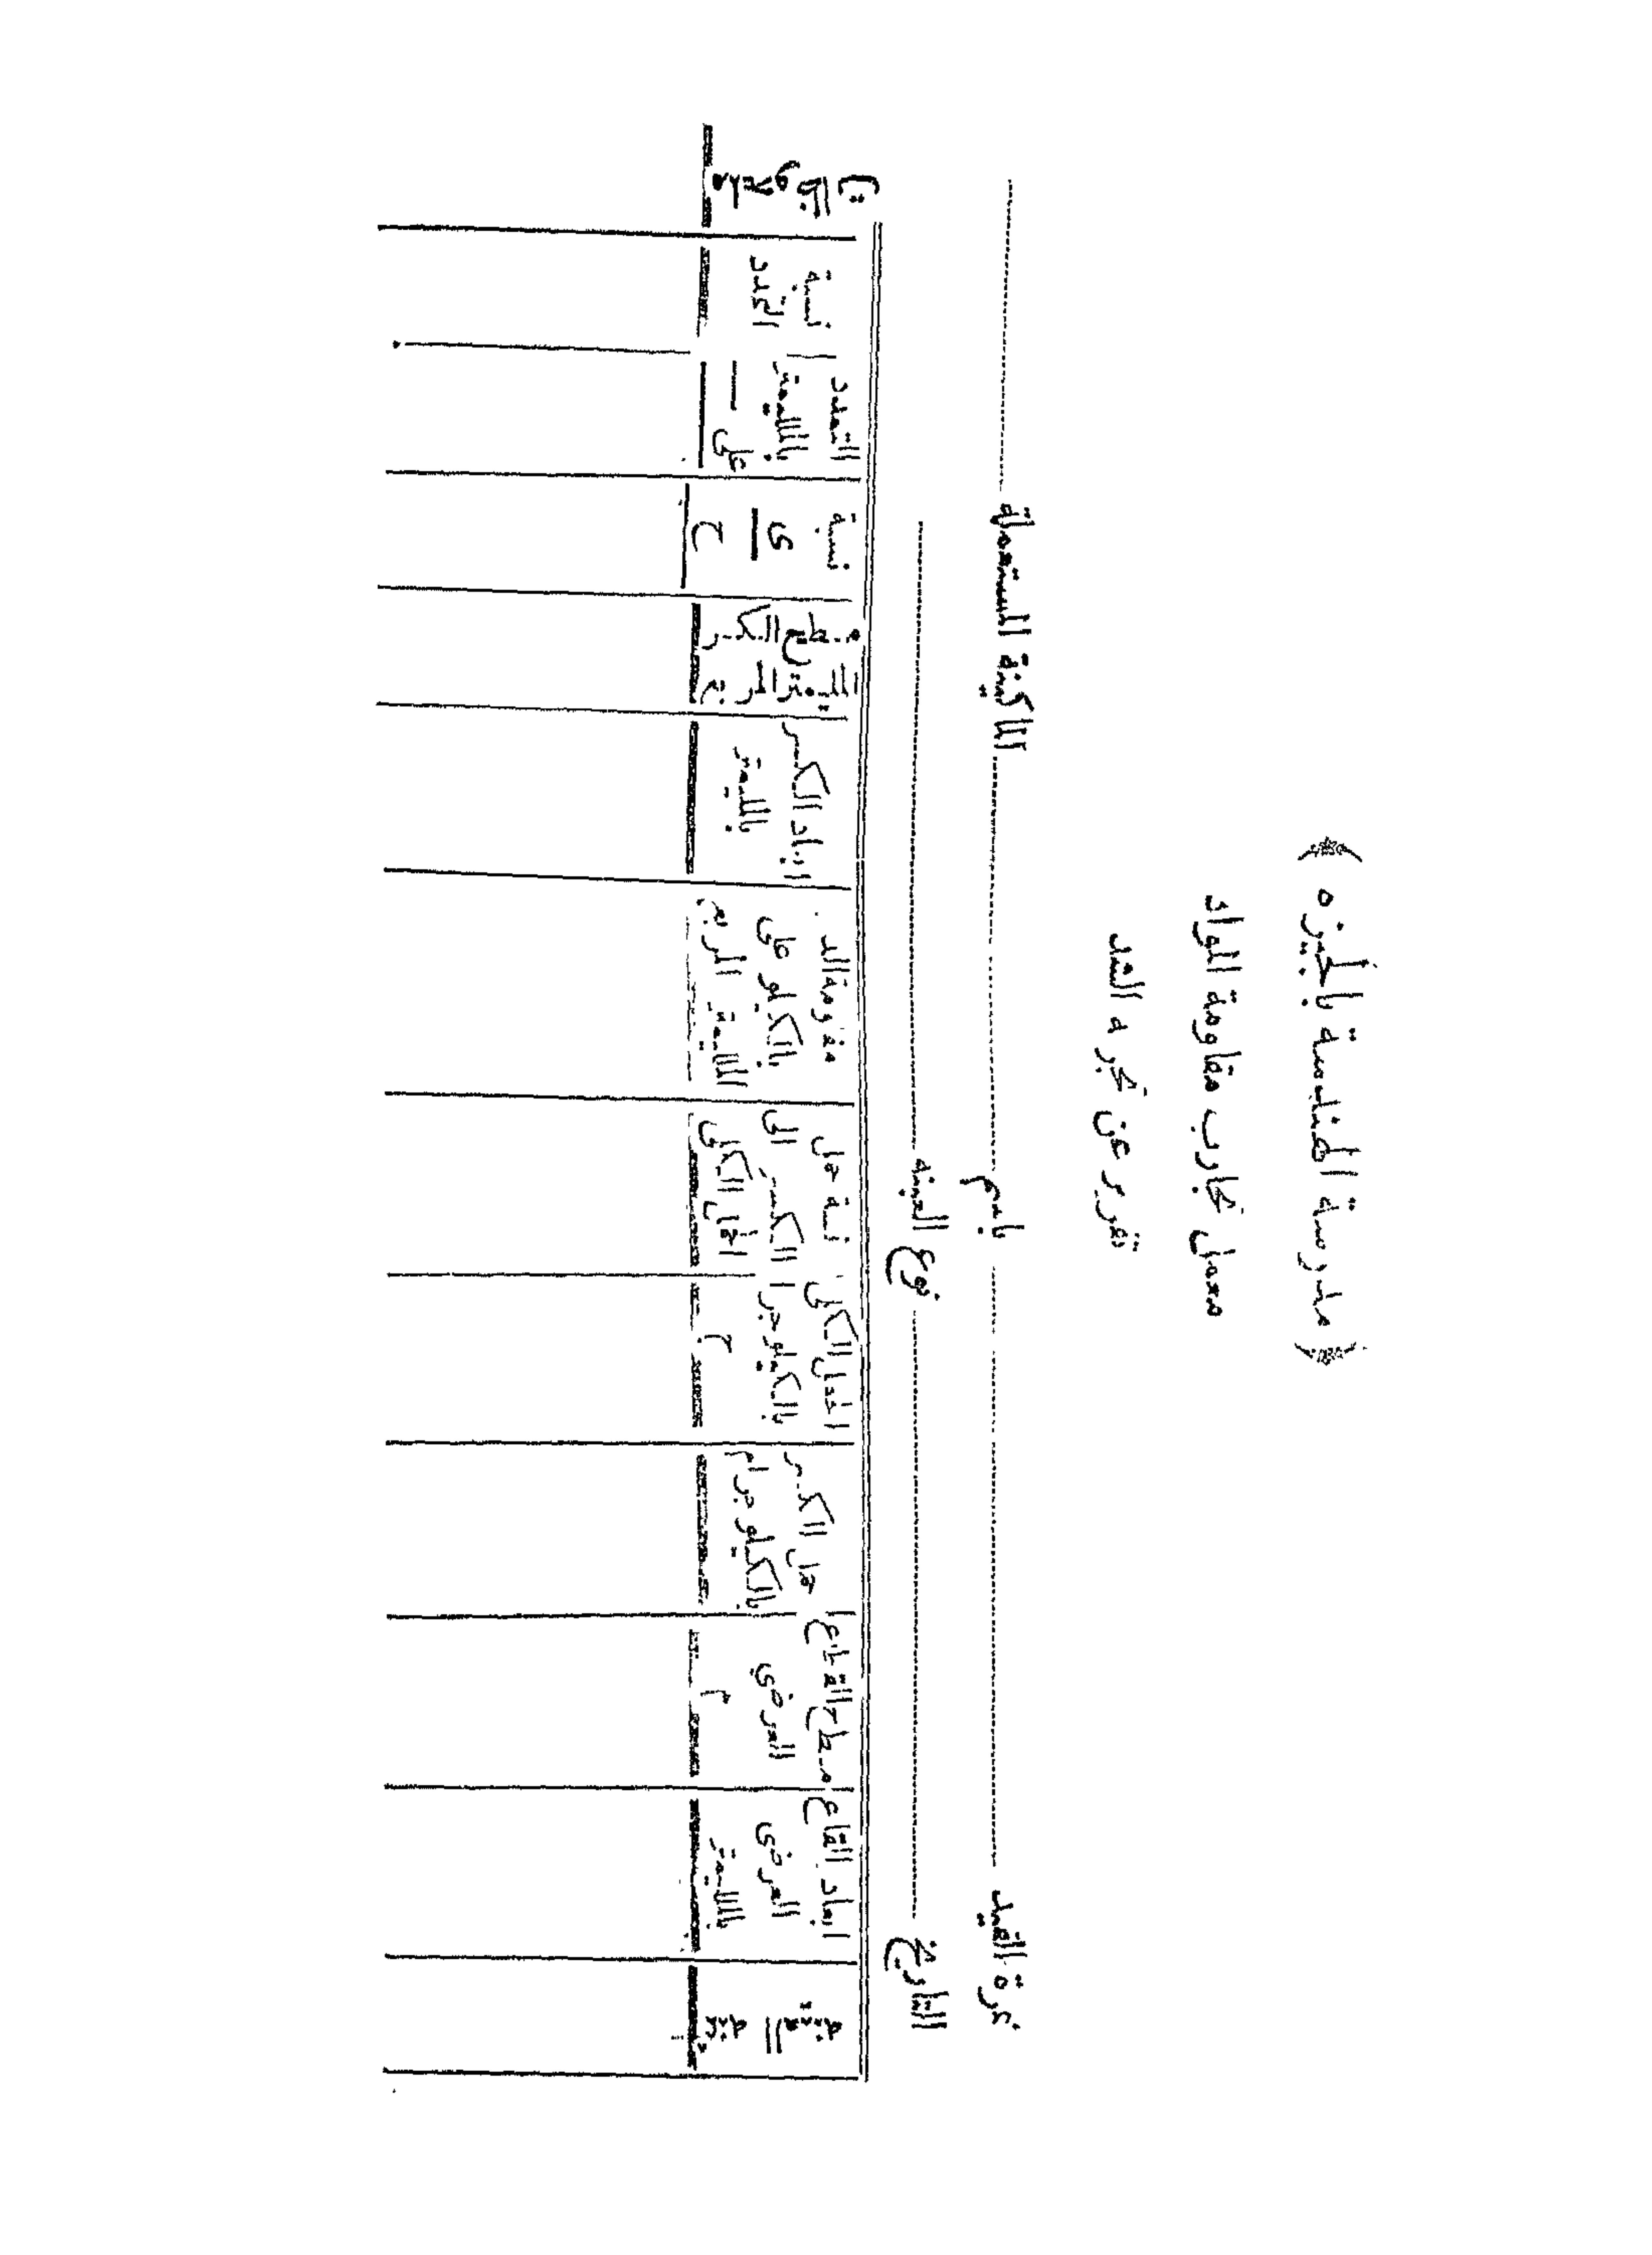 ﴿ مدرسة الهندسة بالجيزه ﴾
معمل تجارب مقاومة المواد
تقرير عن تجربه الشد
نمرة القيد بإسم الماكينة المستعملة
التاريخ نوع العينه
ابعاد القطاع العرضى بالملليمتر
مسطح القطاع العرضي م
حمل الكسر بالكيلوجرام
الحمل الكلى بالكيلوجرا م ح
نسبة حمل الكسر الى الحمل الكلى
مقاومة الشد بالكيلو على الملليمتر المربع
ابعاد الكسر بالملليمتر
مقطع الكسر بالمليمتر المربع
نسبة ى ح
التمدد بالملليمتر على
نسبة التمدد
ملحوظات